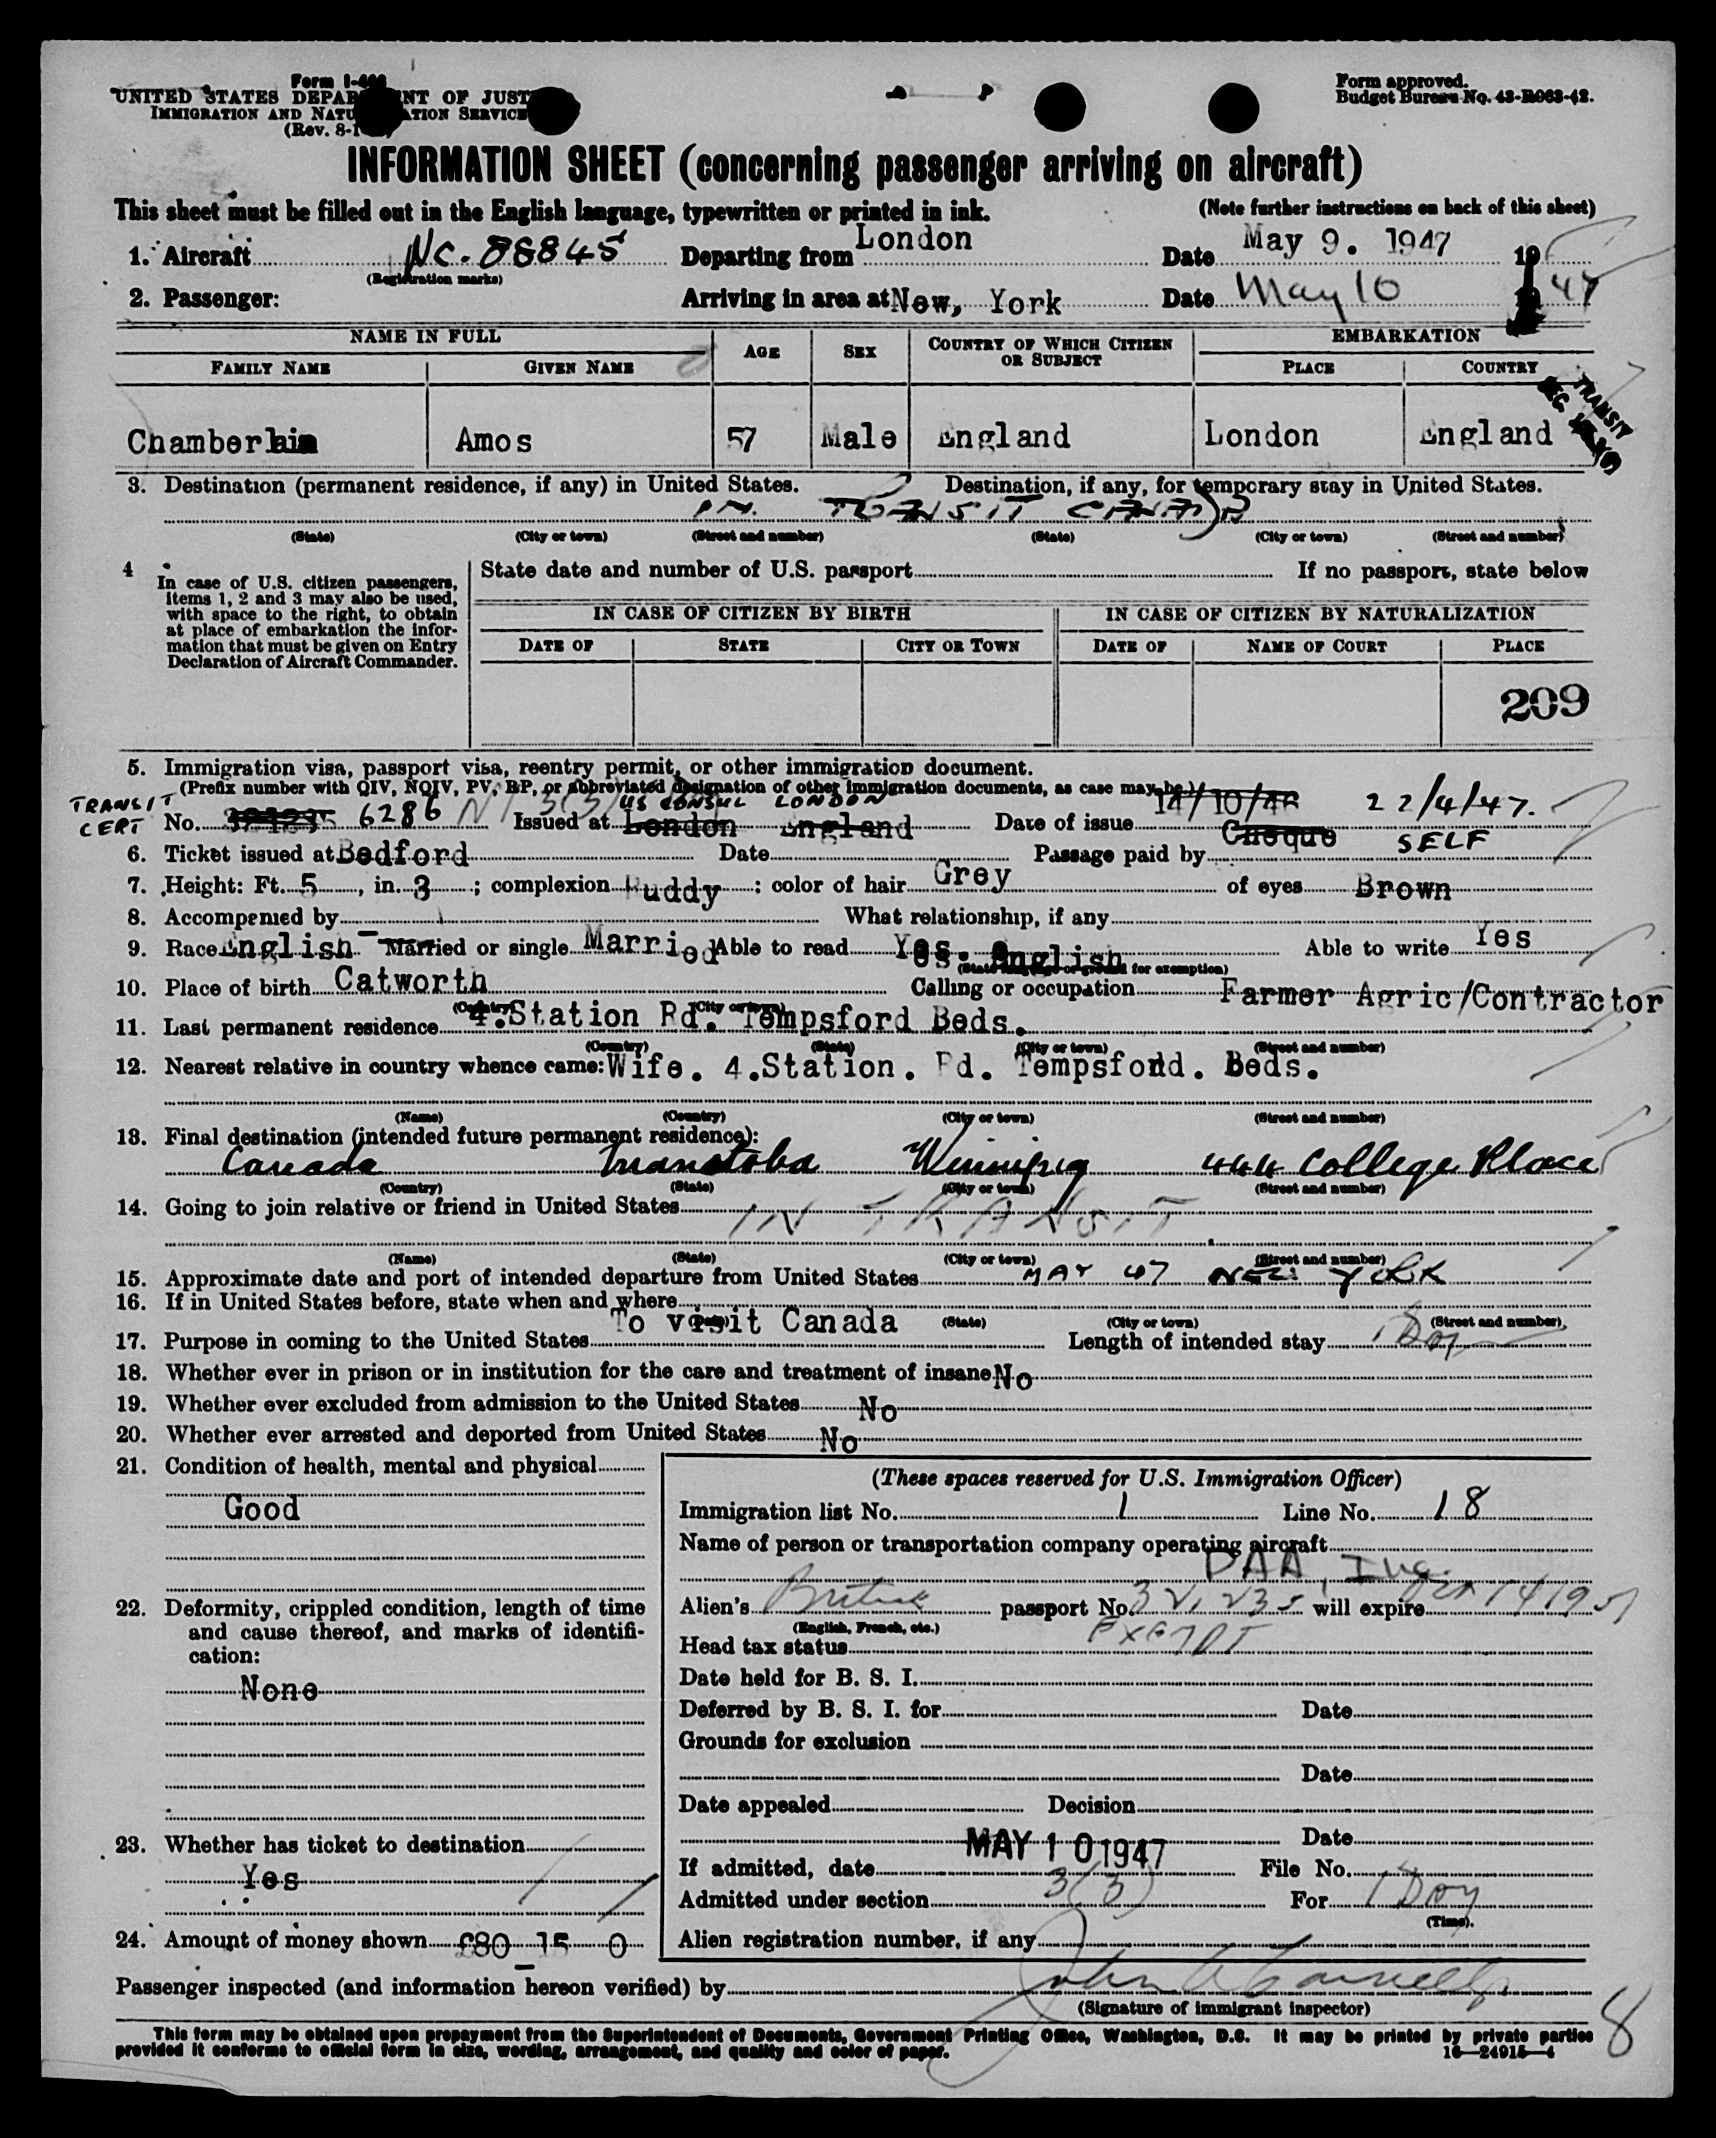 Form I-466
UNITED STATES DEPARTMENT OF JUSTICE
IMMIGRATION AND NATURALIZATION SERVICE
(Rev. 8-1
Form approved.
Budget Bureau No. 43-R063-42.
INFORMATION SHEET (concerning passenger arriving on aircraft)
This sheet must be filled out in the English language, typewritten or printed in ink. (Note further instructions on back of this sheet)
1. Aircraft NC. 88845 Departing from London Date May 9. 1947 19
(Registration marks)
2. Passenger: Arriving in area at New, York Date May 10 47
NAME IN FULL AGE SEX COUNTRY OF WHICH CITIZEN OR SUBJECT EMBARKATION
FAMILY NAME GIVEN NAME PLACE COUNTRY
TRANSIT
Chamberlain Amos 57 Male England London England
3. Destination (permanent residence, if any) in United States. Destination, if any, for temporary stay in United States.
IN TRANSIT CANADA
(State) (City or town) (Street and number) (State) (City or town) (Street and number)
4 In case of U.S. citizen passengers, items 1, 2 and 3 may also be used, with space to the right, to obtain at place of embarkation the information that must be given on Entry Declaration of Aircraft Commander.
State date and number of U.S. passport If no passport, state below
IN CASE OF CITIZEN BY BIRTH IN CASE OF CITIZEN BY NATURALIZATION
DATE OF STATE CITY OR TOWN DATE OF NAME OF COURT PLACE
209
5. Immigration visa, passport visa, reentry permit, or other immigration document.
(Prefix number with QIV, NQIV, PV, RP, or abbreviated designation of other immigration documents, as case may be.)
TRANSIT CERT US CONSUL LONDON 14/10/46 22/4/47.
No. 6286 3(3) Issued at London England Date of issue
6. Ticket issued at Bedford Date Passage paid by Cheque SELF
7. Height: Ft. 5, in. 3; complexion Ruddy; color of hair Grey of eyes Brown
8. Accompanied by What relationship, if any
9. Race English Married or single Married Able to read Yes. English Able to write Yes
(State language or ground for exemption)
10. Place of birth Catworth Calling or occupation Farmer Agric/Contractor
(Country) (City or town)
11. Last permanent residence 4.Station Rd. Tempsford Beds.
(Country) (State) (City or town) (Street and number)
12. Nearest relative in country whence came: Wife. 4.Station. Rd. Tempsford. Beds.
(Name) (Country) (City or town) (Street and number)
13. Final destination (intended future permanent residence):
Canada Manitoba Winnipeg 444 College Place
(Country) (State) (City or town) (Street and number)
14. Going to join relative or friend in United States IN TRANSIT
(Name) (State) (City or town) (Street and number)
15. Approximate date and port of intended departure from United States MAY 47 NEW YORK
16. If in United States before, state when and where
(State) (City or town) (Street and number)
17. Purpose in coming to the United States To visit Canada Length of intended stay 1 Day
18. Whether ever in prison or in institution for the care and treatment of insane No
19. Whether ever excluded from admission to the United States No
20. Whether ever arrested and deported from United States No
21. Condition of health, mental and physical
Good
22. Deformity, crippled condition, length of time and cause thereof, and marks of identification:
None
23. Whether has ticket to destination
Yes
24. Amount of money shown £80 15 0
(These spaces reserved for U.S. Immigration Officer)
Immigration list No. 1 Line No. 18
Name of person or transportation company operating aircraft
PAA, Inc.
Alien's British passport No. 321235 will expire Oct 14 1951
(English, French, etc.)
Head tax status EXEMPT
Date held for B. S. I.
Deferred by B. S. I. for Date
Grounds for exclusion
Date
Date appealed Decision
Date
If admitted, date MAY 10 1947 File No.
Admitted under section 3(3) For 1 Day
(Time).
Alien registration number, if any
Passenger inspected (and information hereon verified) by
(Signature of immigrant inspector)
8
This form may be obtained upon prepayment from the Superintendent of Documents, Government Printing Office, Washington, D.C. It may be printed by private parties
provided it conforms to official form in size, wording, arrangement, and quality and color of paper.
16—24915-4